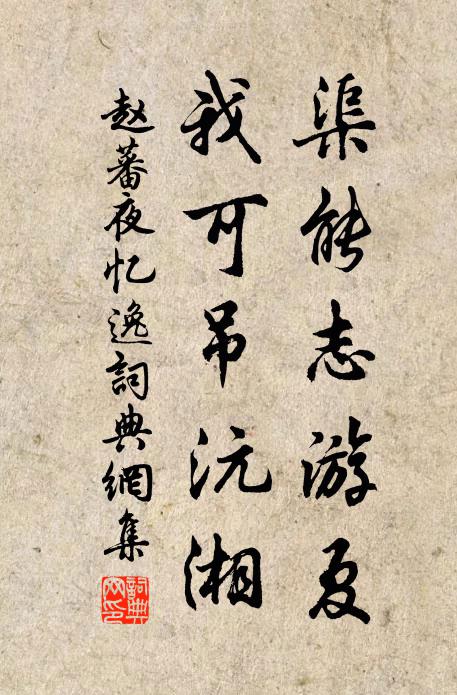 渠能志游夏
我可吊沅湘
赵蕃夜忆逸詞典網集
詞典网印